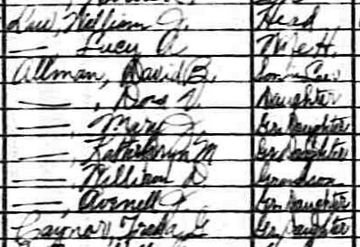 Law, William J. Head
— Lucy A Wife H.
Allman, David B. Son in Law
—, Dora V. Daughter
—, Mary J. Gr Daughter
—, Katherryn M Gr Daughter
—, William D Grandson
—, Avonell J. Gr Daughter
Gaynor, Freda L Gr Daughter